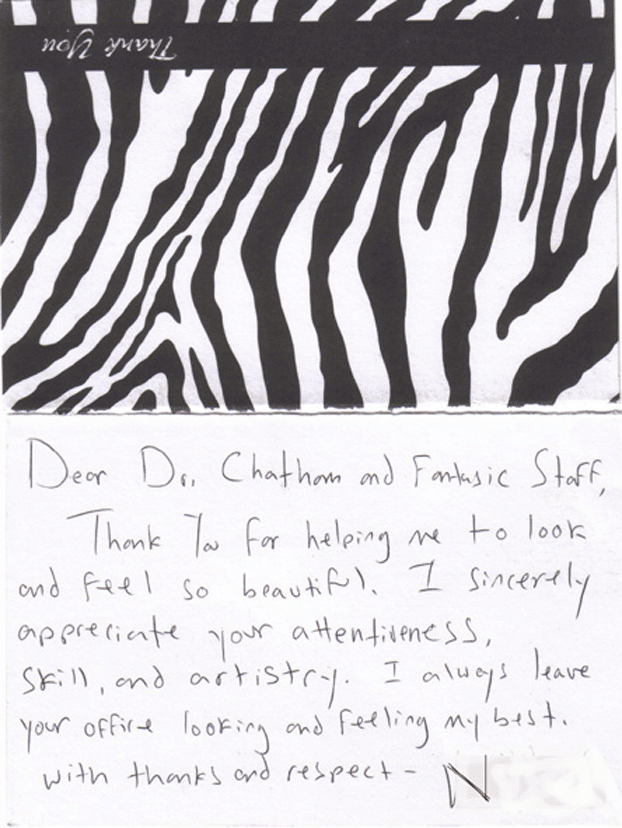 Thank You
Dear Dr. Chatham and Fantasic Staff,
Thank You for helping me to look
and feel so beautiful. I sincerely
appreciate your attentiveness,
skill, and artistry. I always leave
your office looking and feeling my best.
with thanks and respect - N